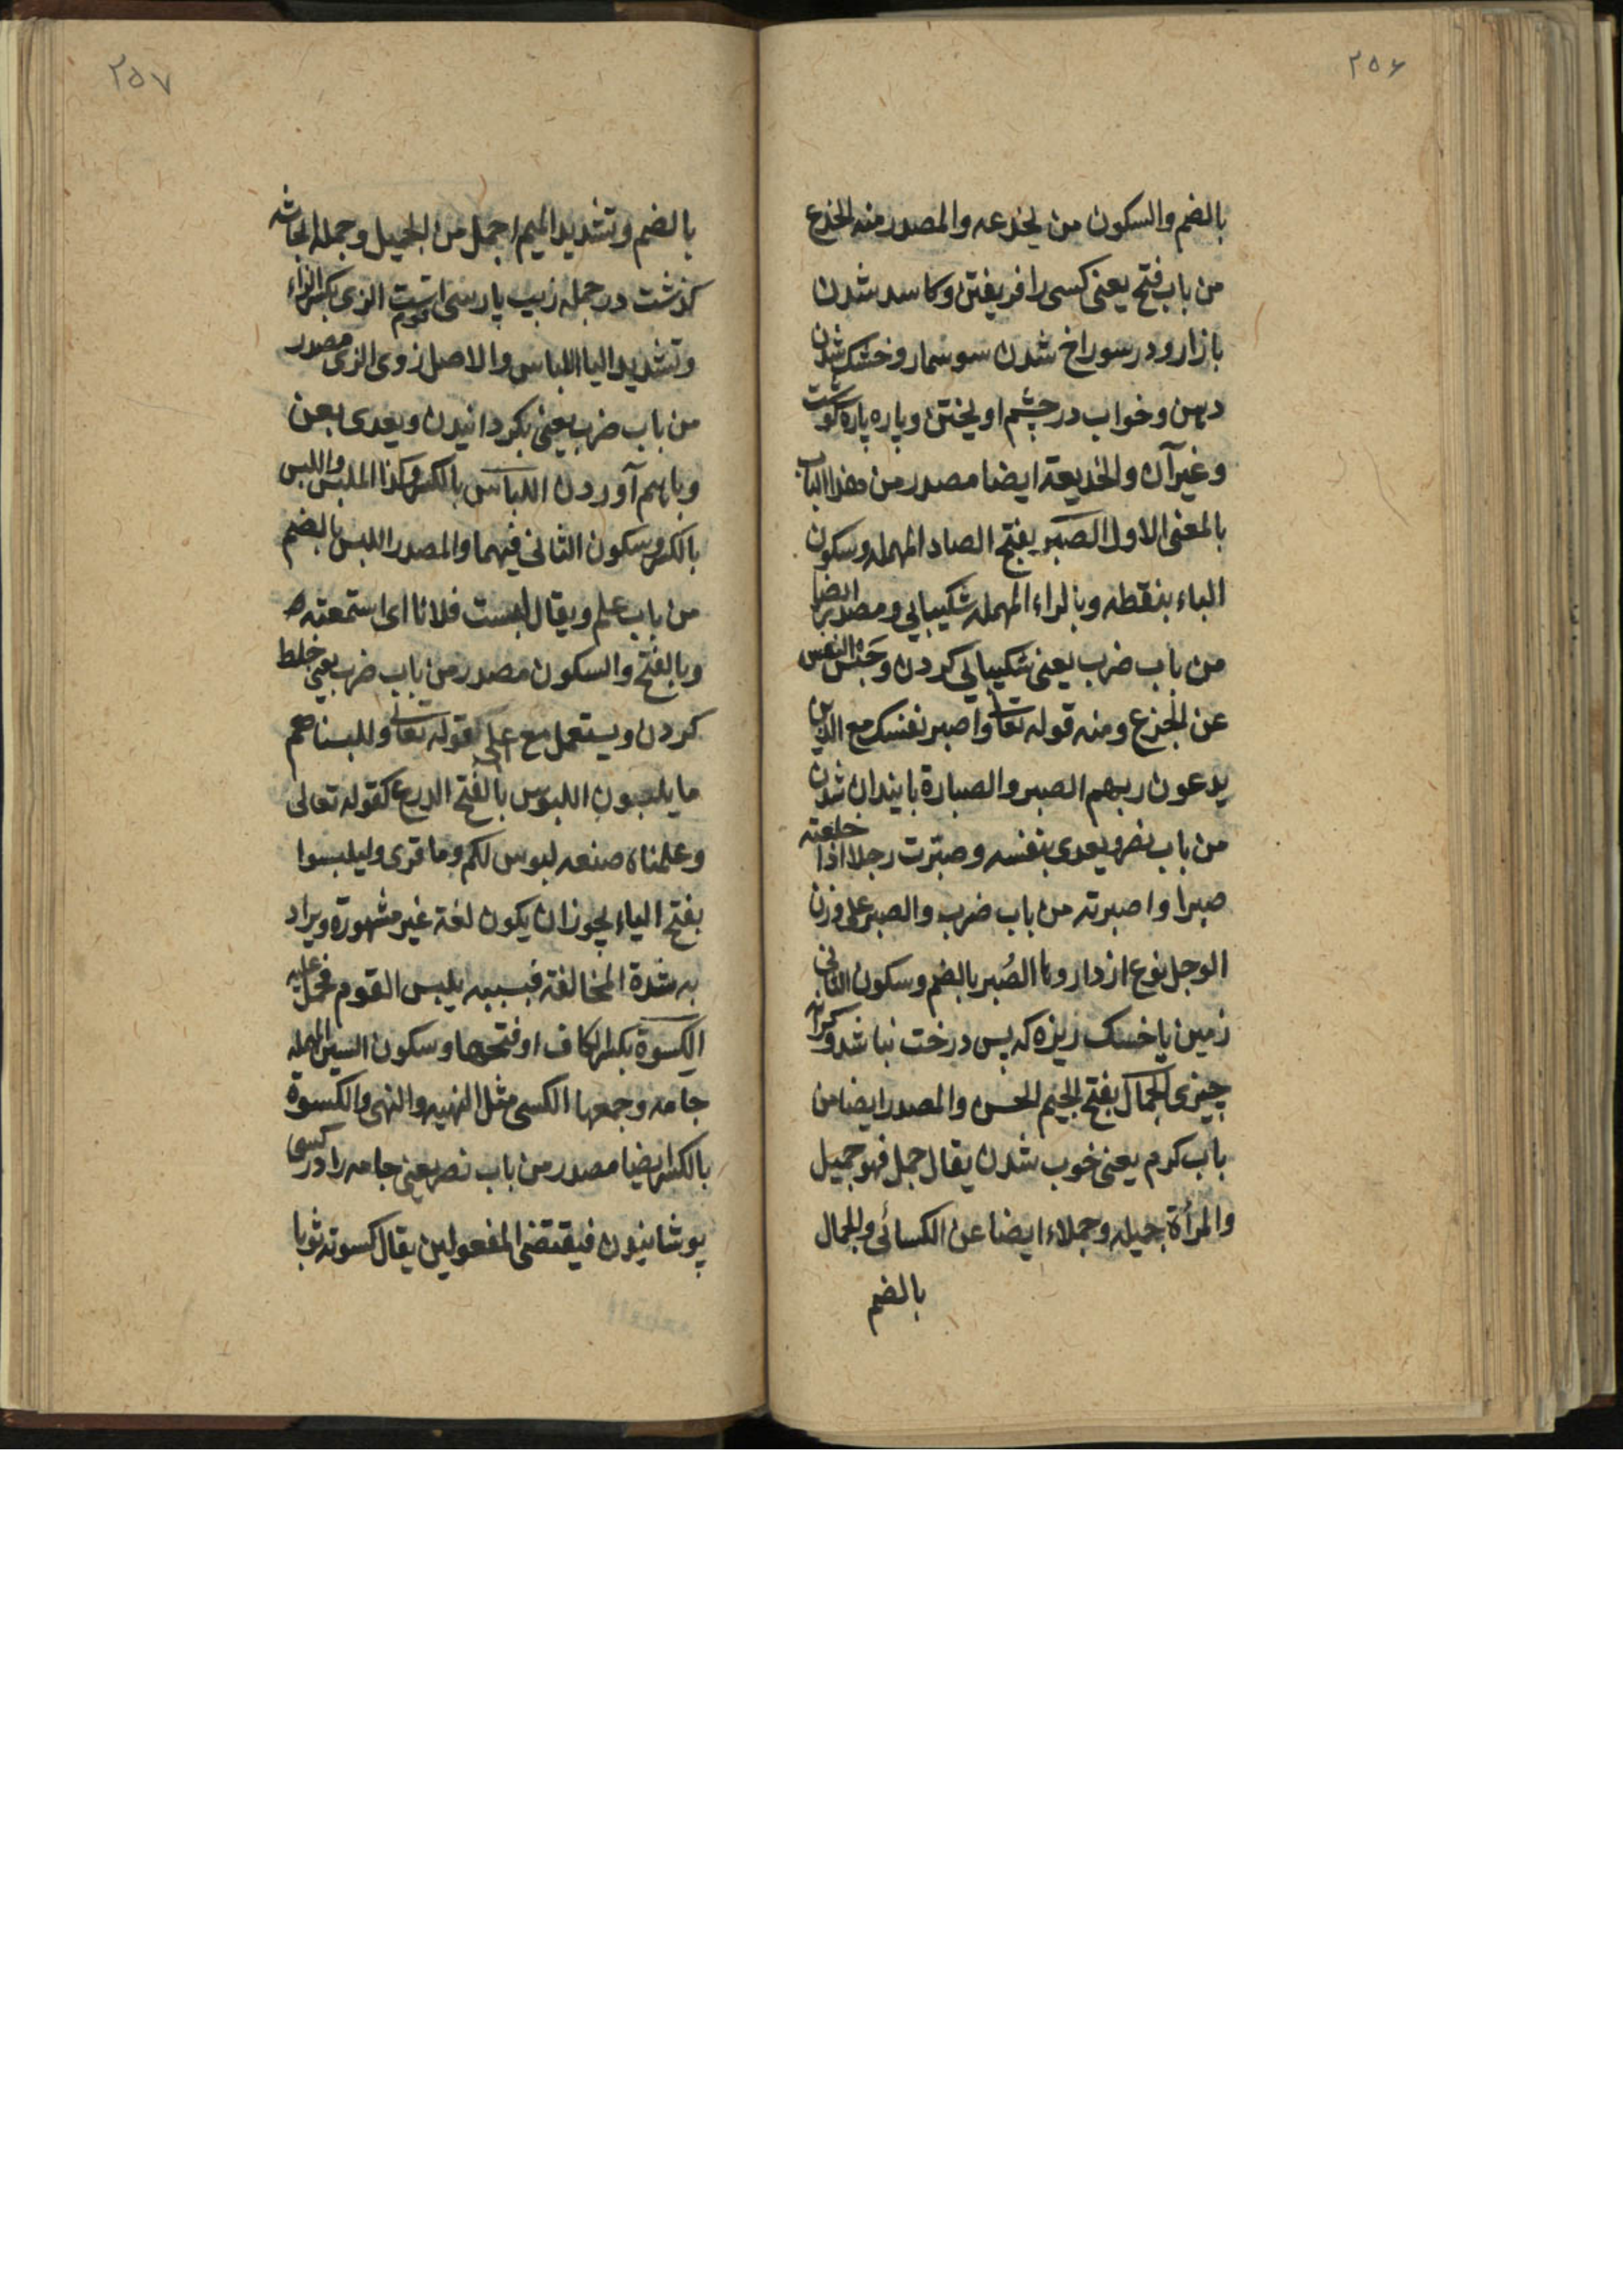 ٢٥۶
بالضم والسكون من يخدعه والمصدر منه الخدع
من باب فتح يعنى كسى را فريفتن وكاسد شدن
بازار ودر سوراخ شدن سوسمار وخشك شدن
دهن وخواب در چشم اويختن وپاره پاره گوشت
وغير آن والخديعة ايضا مصدر من هذا الباب
بالمعنى الاول الصبر بفتح الصاد المهمله وسكون
الباء بنقطه وبالراء المهمله شكيبايى ومصدر ايضا
من باب ضرب يعنى شكيبايى كردن وحبس النفس
عن الجزع ومنه قوله تعا واصبر نفسك مع الذين
يدعون ربهم الصبر والصبارة پايندان شدن
من باب نصر ويعدى بنفسه وصبرت رجلا اذا حلفته
صبرا واصبرته من باب ضرب والصبر على وزن
الوجل نوع از داروها الصُبر بالضم وسكون الثانى
زمين باخسك ريزه كه پس درخت نباشد وكرانه
چيزى الجمال بفتح الجيم الحسن والمصدر ايضا من
باب كرم يعنى خوب شدن يقال جمل فهو جميل
والمرأة جميله وجملاء ايضا عن الكسائى والجمال
بالضم
٢٥٧
بالضم وتشديد الميم اجمل من الجميل وجمله
گذشت در جمله زيب پارسى است الزى بكسر الزاء
وتشديد اليا اللباس والاصل زوى الزى مصدر
من باب ضرب يعنى بكردانيدن ويعدى بعن
وباهم آوردن اللباس بالكسر وكذا الملبس واللبس
بالكسر وسكون الثانى فيهما والمصدر اللبس بالضم
من باب علم ويقال لبست فلانا اى استمعته
وبالفتح والسكون مصدر من باب ضرب يعنى خلط
كردن ويستعمل مع على كقوله تعالى وللبسنا عليهم
ما يلبسون اللبوس بالفتح الدرع كقوله تعالى
وعلمناه صنعه لبوس لكم وما قرى وليلبسوا
بفتح الياء يجوز ان يكون لغة غير مشهورة ويراد
به شدة المخالفة فبسببه يلبس القوم فحمل عليه
الكسوة بكسر الكاف او فتحها وسكون السين المهمله
جامه وجمعها الكسى مثل النهيه والنهى والكسوة
بالكسر ايضا مصدر من باب نصر يعنى جامه را در كسى
پوشانيدن فيقتضى المفعولين يقال كسوته ثوبا